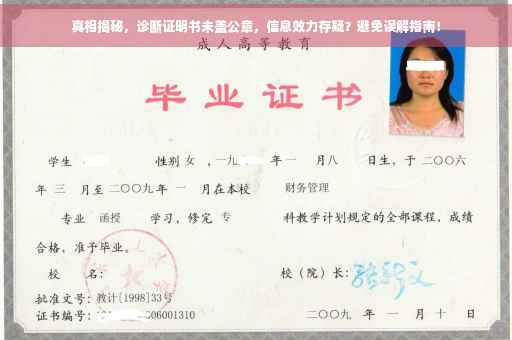 真相揭秘，诊断证明书未盖公章，信息效力存疑？避免误解指南！
成人高等教育
毕业证书
学生 性别 女 ，一九 年 一 月八 日生，于 二〇〇六
年 三 月至 二〇〇九 年 一 月在本校 财务管理
专业 函授 学习，修完 专 科教学计划规定的全部课程，成绩
合格，准予毕业。
校 名： 校（院）长：
批准文号：教计[1998]33号
证书编号： 06001310 二〇〇九 年 一 月 十 日